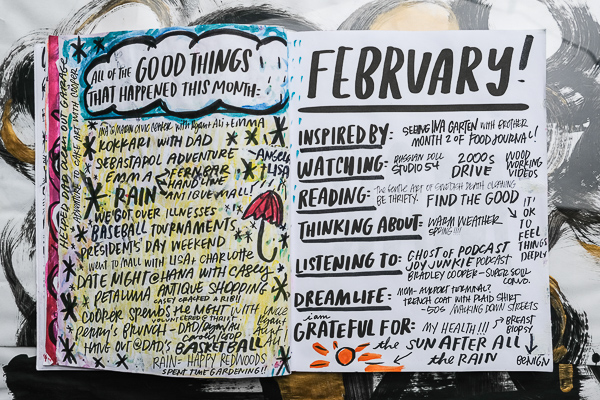 ALL OF THE GOOD THINGS
THAT HAPPENED THIS MONTH:
HELPED DAD CLEAN OUT GARAGE
ADVENTURE TO CAKE ART WITH COOPER
INA @ MARIN CIVIC CENTER WITH BRYANT + ALI + EMMA
KOKKARI WITH DAD
SEBASTOPOL ADVENTURE
ANGELA
LISA
EMMA
FERN BAR
HANDLINE
ANTIQUE MALL!
RAIN
WE GOT OVER ILLNESSES
BASEBALL TOURNAMENTS
PRESIDENT'S DAY WEEKEND
WENT TO MALL WITH LISA + CHARLOTTE
DATE NIGHT @ HANA WITH CASEY
PETALUMA ANTIQUE SHOPPING
CASEY CRACKED A RIB!!
COOPER SPENDS THE NIGHT WITH UNCLE
BRYANT
PERRY'S BRUNCH - DAD/BRYAN/ALI
HANG OUT @ DAD'S
BASKETBALL
RAIN = HAPPY REDWOODS
SPENT TIME GARDENING!!
FEBRUARY!
INSPIRED BY: SEEING INA GARTEN WITH BROTHER
MONTH 2 OF FOOD JOURNAL!
WATCHING: RUSSIAN DOLL
STUDIO 54
2000s
DRIVE
WOOD
WORKING
VIDEOS
READING: THE GENTLE ART OF SWEDISH DEATH CLEANING
BE THRIFTY.
FIND THE GOOD
THINKING ABOUT: WARM WEATHER
SPRING!!!
IT'S
OK
TO
FEEL
THINGS
DEEPLY
LISTENING TO: GHOST OF PODCAST
JOY JUNKIE PODCAST
BRADLEY COOPER - SUPER SOUL
CONVO.
DREAMLIFE: MOM-
TRENCH COAT WITH PLAID SHIRT
-50s / WALKING DOWN STREETS
i am
GRATEFUL FOR: MY HEALTH!!!
BREAST
BIOPSY
BENIGN
the SUN AFTER ALL
the RAIN